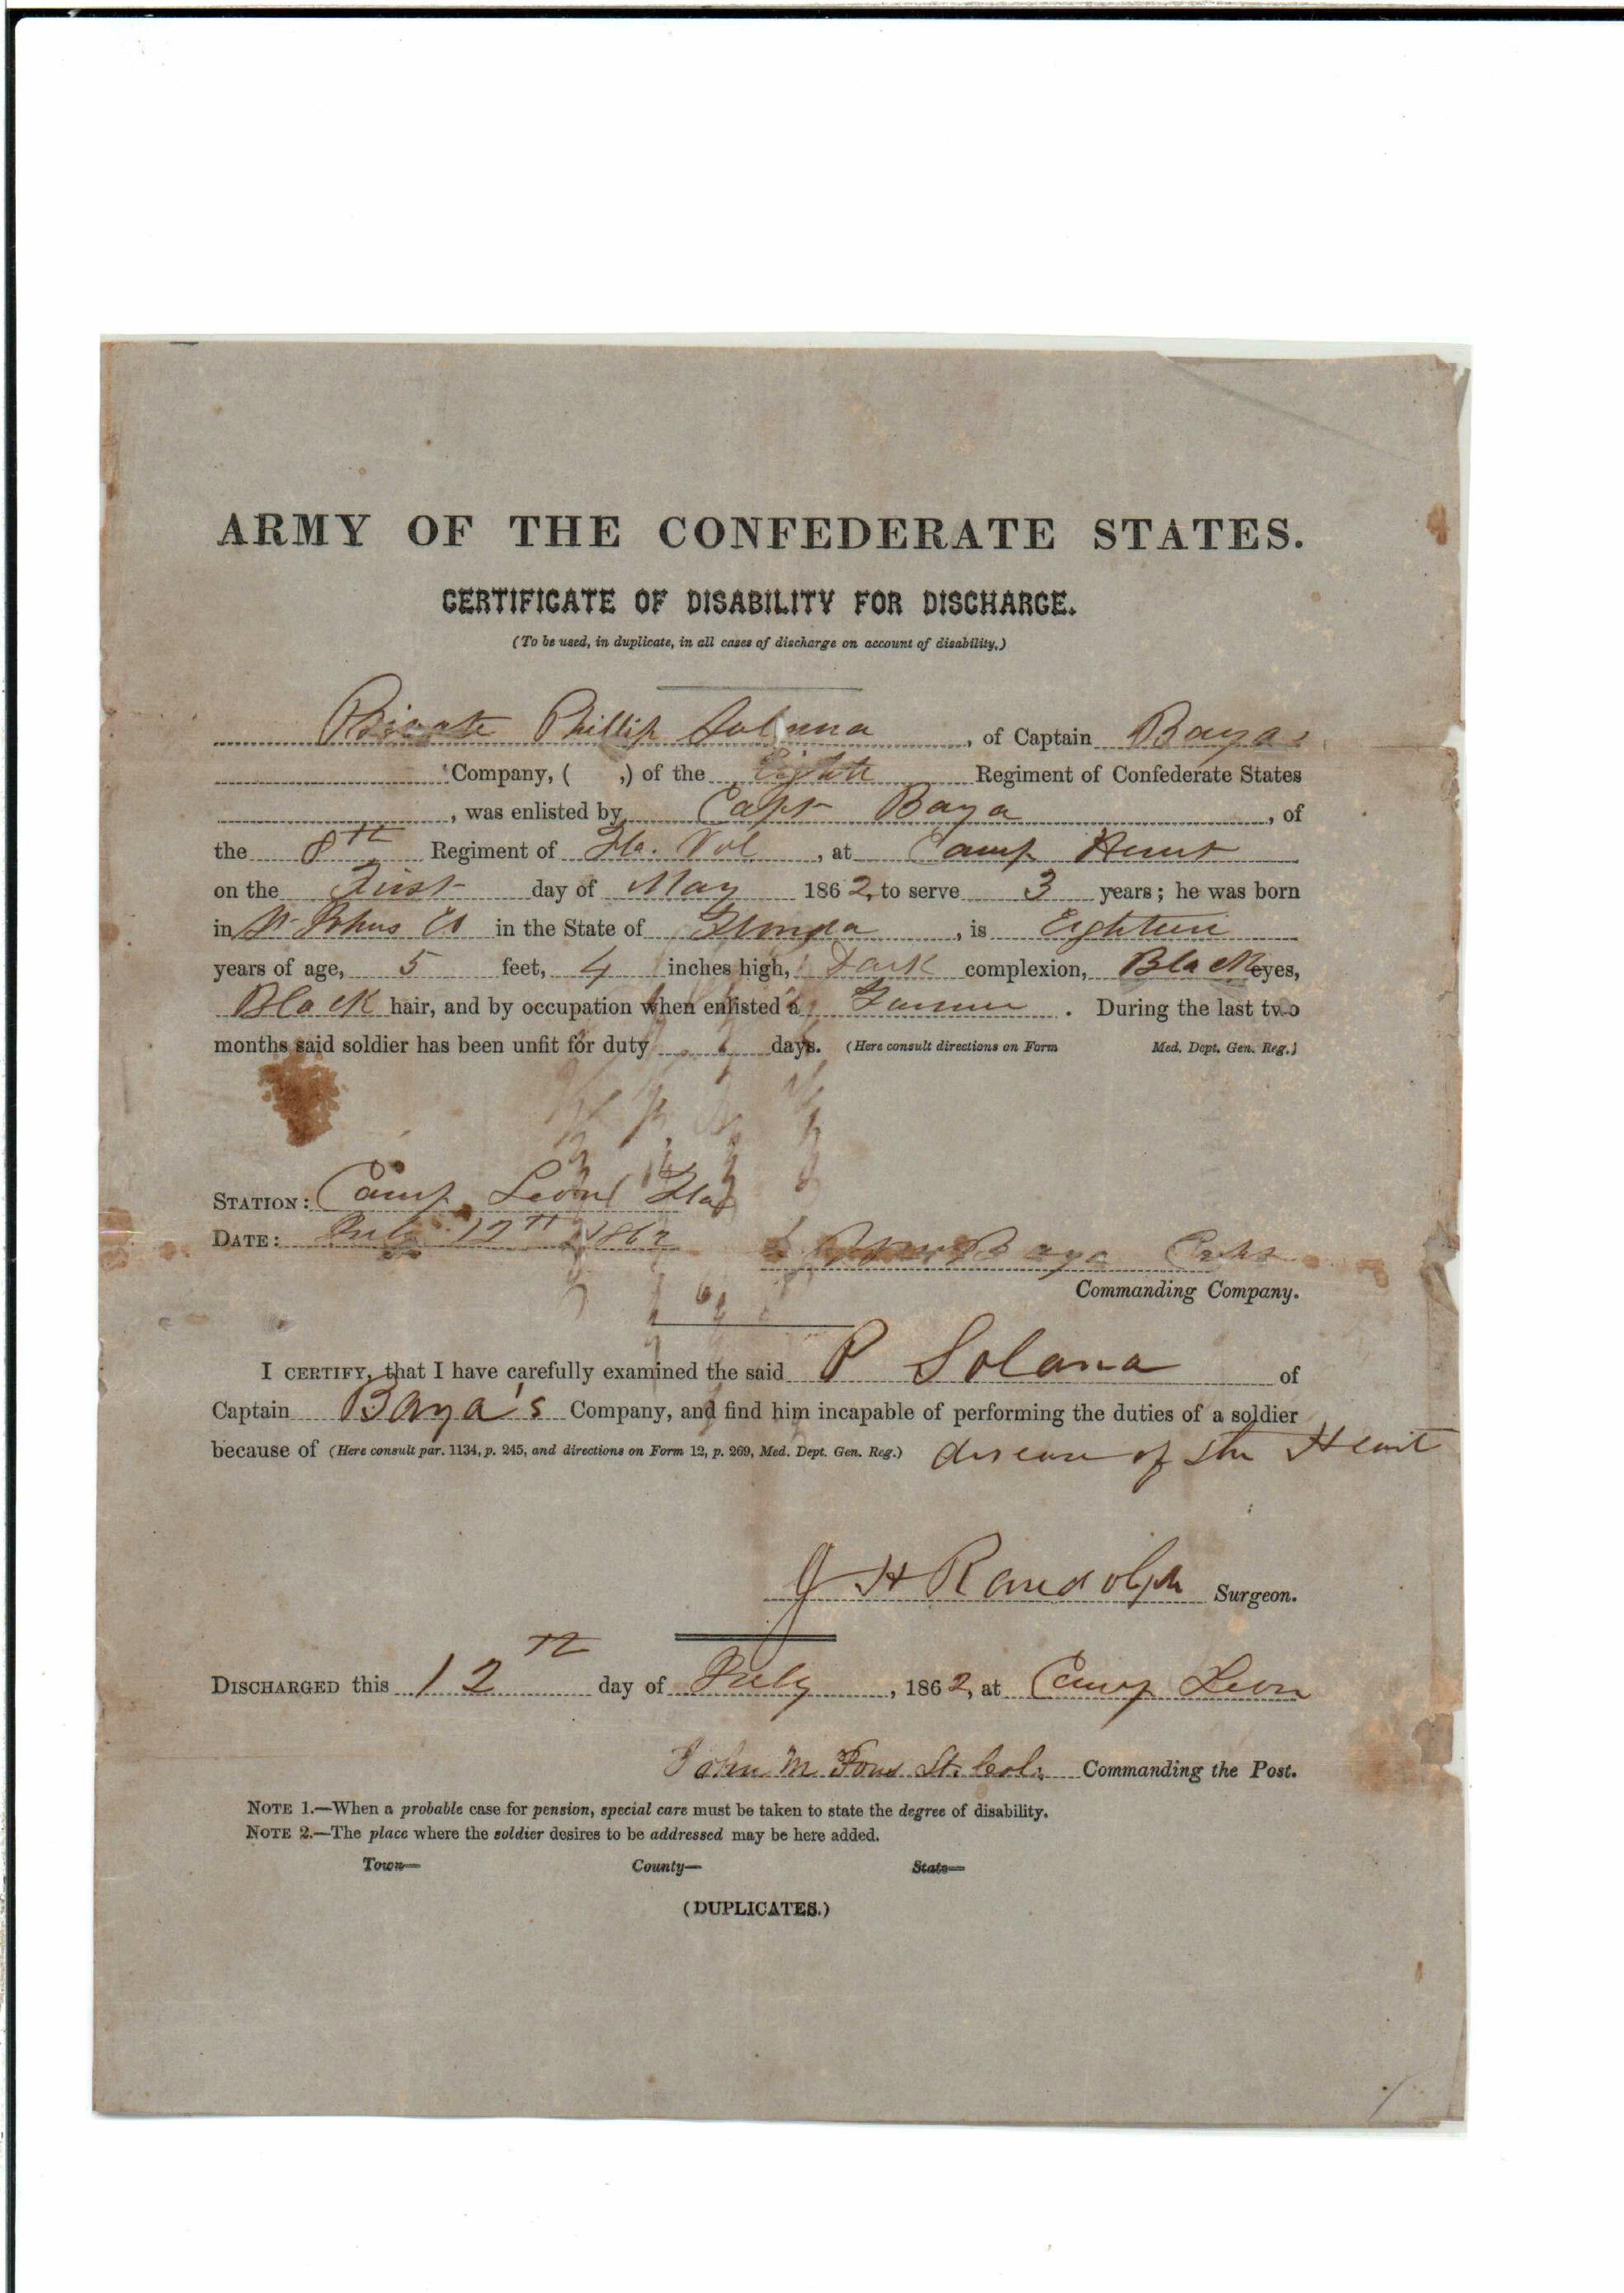 ARMY OF THE CONFEDERATE STATES.
CERTIFICATE OF DISABILITY FOR DISCHARGE.
(To be used, in duplicate, in all cases of discharge on account of disability.)
Private Phillip Solana, of Captain Baya's
Company, ( ,) of the Eighth Regiment of Confederate States
, was enlisted by Capt Baya, of
the 8th Regiment of Fla. Vol, at Camp
on the First day of May 1862, to serve 3 years; he was born
in St Johns Co in the State of Florida, is Eighteen
years of age, 5 feet, 4 inches high, Dark complexion, Black eyes,
Black hair, and by occupation when enlisted a Farmer. During the last two
months said soldier has been unfit for duty days. (Here consult directions on Form Med. Dept. Gen. Reg.)
STATION: Camp Leon Fla
DATE: July 12th 1862
Baya Capt
Commanding Company.
I CERTIFY, that I have carefully examined the said P Solana of
Captain Baya's Company, and find him incapable of performing the duties of a soldier
because of (Here consult par. 1134, p. 245, and directions on Form 12, p. 269, Med. Dept. Gen. Reg.) disease of the Heart
J H Randolph Surgeon.
DISCHARGED this 12th day of July, 1862, at Camp Leon
John M Lt. Col. Commanding the Post.
NOTE 1.—When a probable case for pension, special care must be taken to state the degree of disability.
NOTE 2.—The place where the soldier desires to be addressed may be here added.
Town— County— State—
(DUPLICATES.)